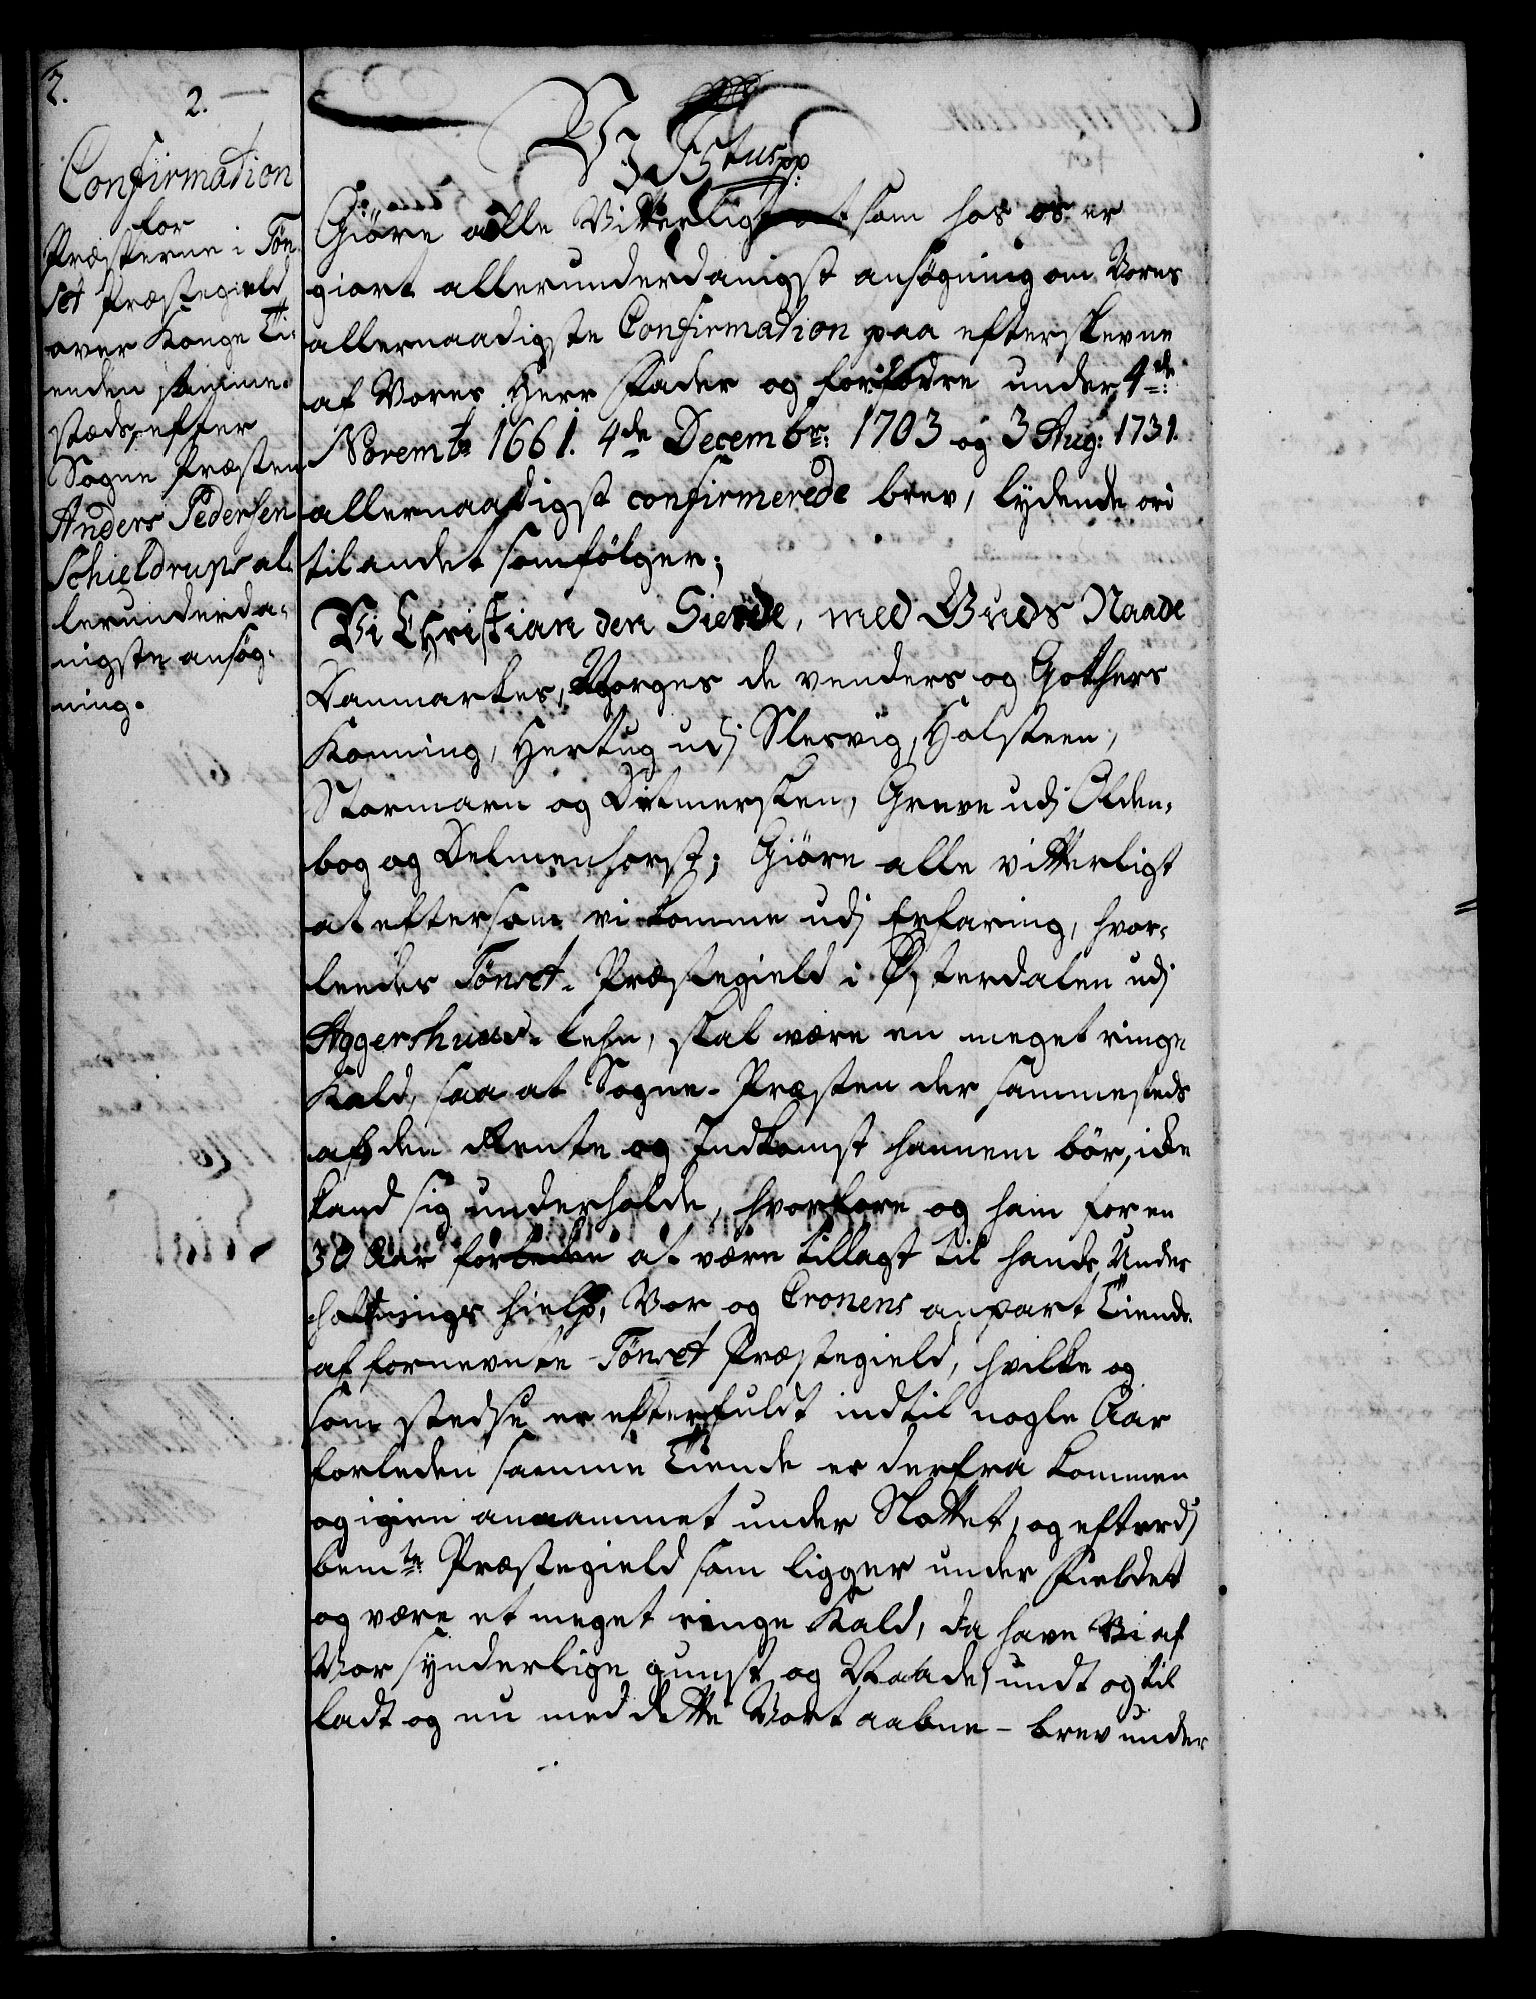 2.
2.
Confirmation
for
Præsterne i Tön-
set Præstegield
over Konge Ti-
enden samme-
stæds, efter
Sogne Præsten
Anders Pedersen
Schieldrups al-
lerunderda-
nigste ansög-
ning.
Vi F 5tus pp:
Giöre alle Vitterligt at som hos os er
giort allerunderdanigst ansögning om Vores
allernaadigste Confirmation paa efterskrevne
af Vores Herr Fader og forfædre under 4de
Novembr 1661. 4de Decembr: 1703 og 3 Aug: 1731.
allernaadigst confirmerede brev, lydende ord
til andet som fölger;
Vi Christian den Fierde, med Guds Naade
Danmarkes, Norges de venders og Gothers
Konning, Hertug udj Slesvig, Holsteen,
Stormarn og Ditmersken, Greve udj Olden-
bog og Delmenhorst; Giöre alle vitterligt
at eftersom vi komme udj Erfaring, hvor-
ledes Tönset-Præstegield i Østerdalen udj
Aggershuus-Lehn, skal være en meget ringe
Kald, saa at Sogne-Præsten der sammesteds
af den Rente og Indkomst hannem bör, icke
kand sig underholde, hvorfore og ham for en
30 Aar forleden at være tillagt til hands Under
holdnings hielp, Vor og Cronens anpart Tiende
af fornevnte Tönset Præstegield, hvilke og
som stedse er efterfuldt indtil nogle Aar
forleden samme Tiende er derfra kommen
og igien annammet under Slottet, og efterdj
bemte Præstegield som ligger under Fieldet
og være et meget ringe Kald, da have Vi af
Vor synderlige gunst og Naade, undt og til
ladt og nu med dette Vort aabne-brev under